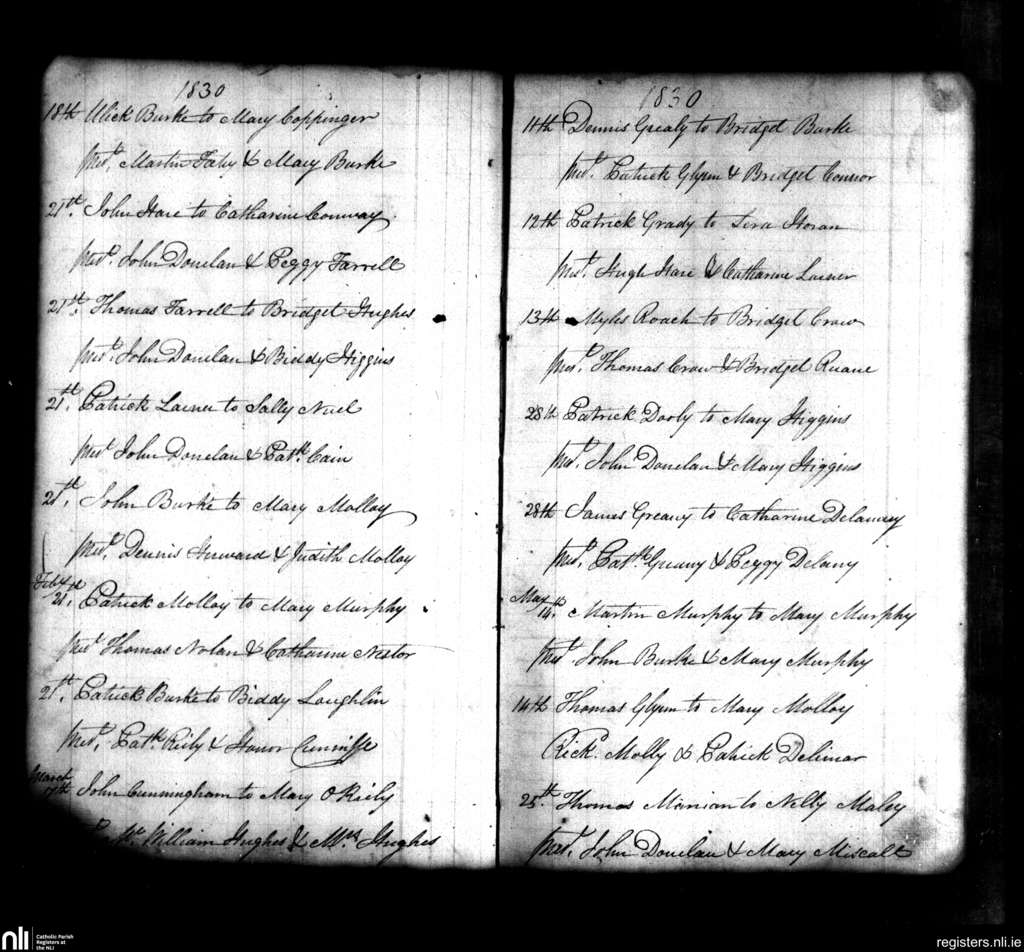 1830
18th Ulick Burke to Mary Coppinger
prest. Martin Fahy & Mary Burke
21st. John Hare to Catharine Conway
prest. John Donelan & Peggy Farrell
21st. Thomas Farrell to Bridget Hughes
prest. John Donelan & Biddy Higgins
21st. Patrick Larner to Sally Nuel
prest John Donelan & Patk. Cain
21st. John Burke to Mary Molloy
prest. Dennis & Judith Molloy
Feby
21st. Patrick Molloy to Mary Murphy
prest Thomas Nolan & Catharine Nestor
21st. Patrick Burke to Biddy Loughlin
prest. Patk. Riely & Honor Cunniffe
March
17th John Cunningham to Mary O Riely
William Hughes & Mrs. Hughes
1830
11th Dennis Grealy to Bridget Burke
prest. Patrick Glynn & Bridget Connor
12th Patrick Grady to Horan
prest. Hugh Hare & Catharine Larner
13th Myles Roach to Bridget Crow
prest. Thomas Crow & Bridget Ruane
28th Patrick Dorly to Mary Higgins
prest. John Donelan & Mary Higgins
28th James Greany to Catharine Delanney
prest. Patk. Greany & Peggy Delany
May
14th. Martin Murphy to Mary Murphy
prest John Burke & Mary Murphy
14th Thomas Glynn to Mary Molloy
Rickd. Molly & Patrick Delimar
25th. Thomas Minian to Nelly Maley
prest. John Donelan & Mary Miscall
nli Catholic Parish
Registers at
the NLI
registers.nli.ie